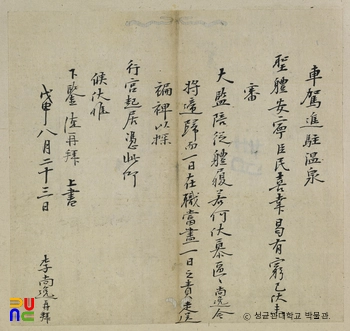 車駕進駐温泉
聖體安寧臣民喜幸曷有窮已伏未
審
天監陪從體履若何伏慕區區尚逸今
將還歸而一日在職當盡一日之責走伻
裨以探
行宮起居憑此仰
候伏惟
下鑒 再拜 上書
戊申八月二十三日
李尚逸再拜
성균관대학교 박물관